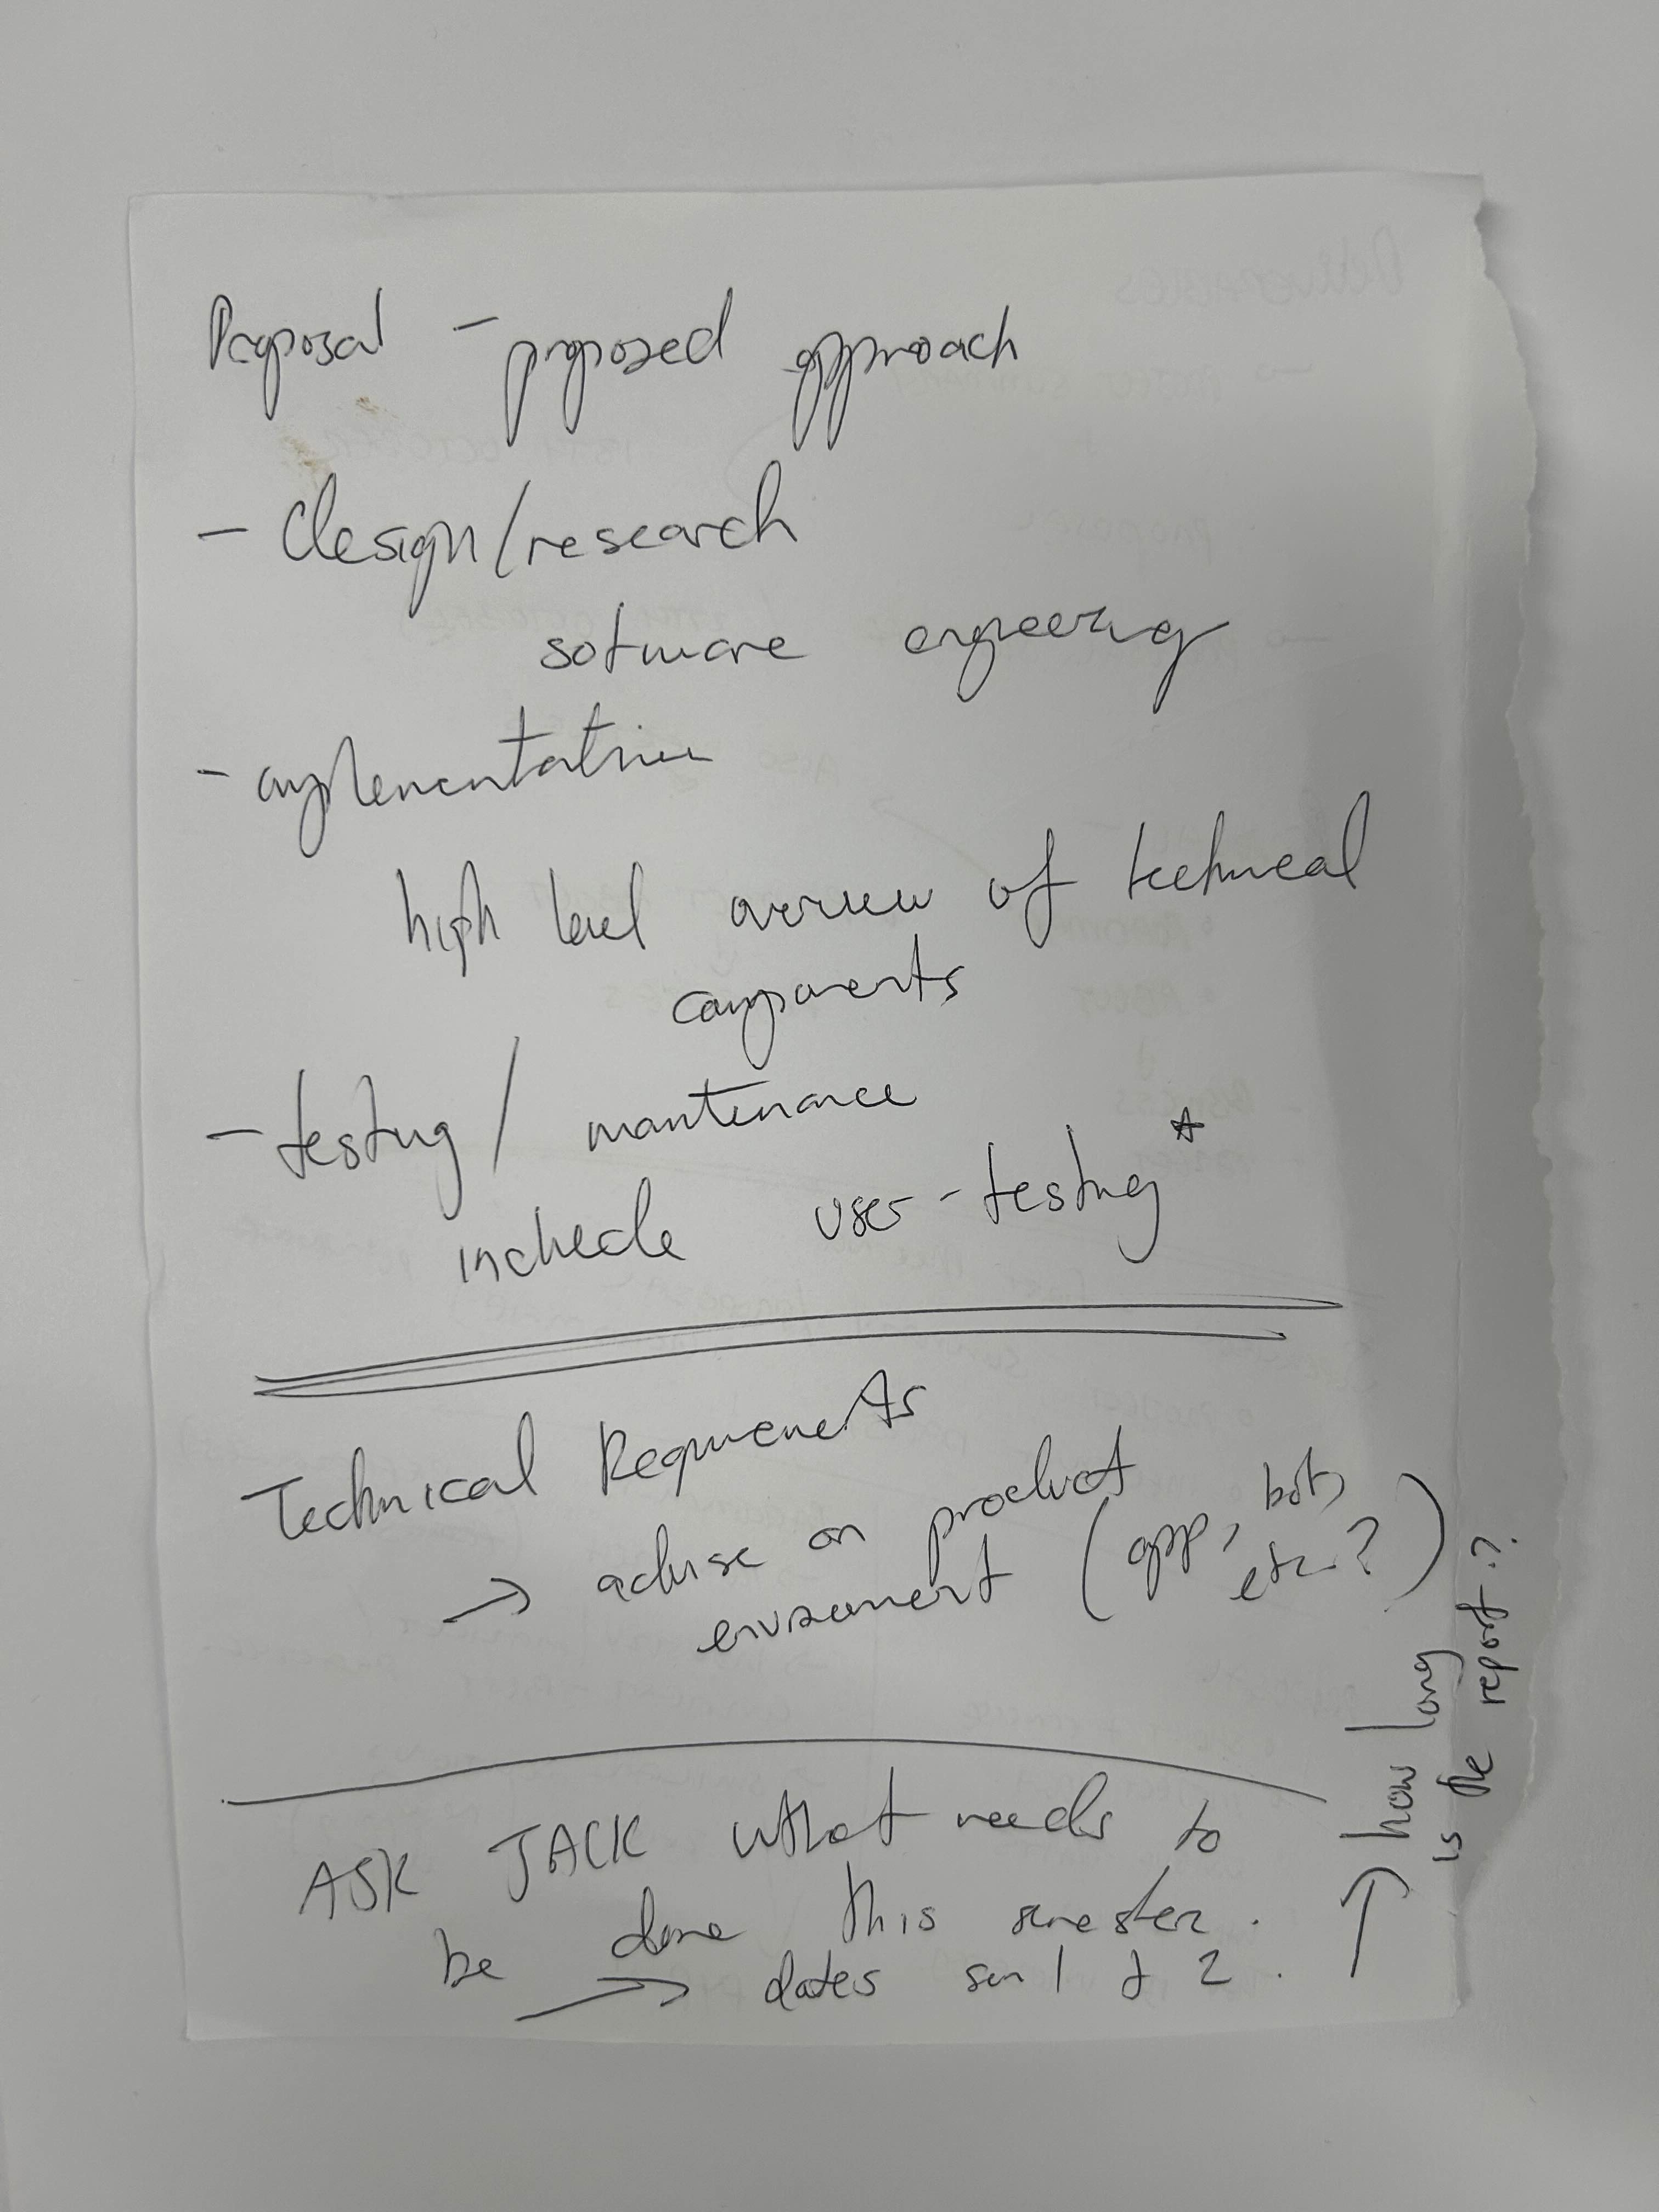 Proposal - proposed approach
- design/research
software engineering
- implementation
high level overview of technical
components
- testing / maintenance
include user-testing *
Technical Requirements
→ advise on product
enviroment (app, bot,
etc.?)
ASK JACK what needs to
be done this semester.
→ dates sem 1 & 2.
→ how long
is the report?